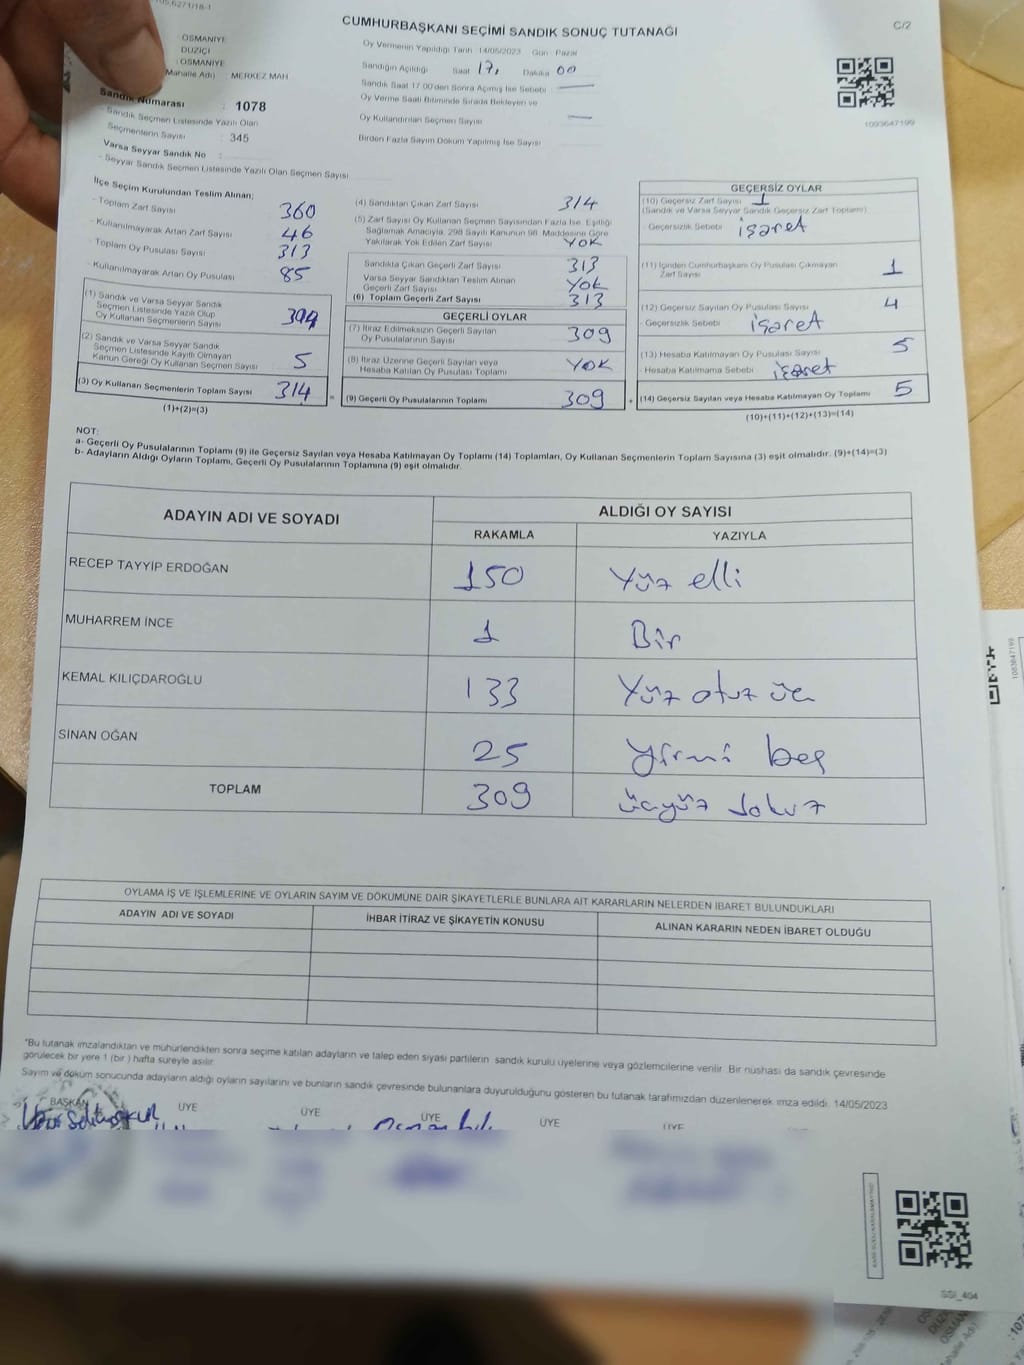 CUMHURBAŞKANI SEÇİMİ SANDIK SONUÇ TUTANAĞI
C/2
OSMANİYE
DÜZİÇİ
OSMANİYE
Mahalle Adı) : MERKEZ MAH
Sandık Numarası : 1078
- Sandık Seçmen Listesinde Yazılı Olan
Seçmenlerin Sayısı : 345
Varsa Seyyar Sandık No :
- Seyyar Sandık Seçmen Listesinde Yazılı Olan Seçmen Sayısı
Oy Vermenin Yapıldığı Tarih : 14/05/2023 Gün : Pazar
Sandığın Açıldığı Saat 17, Dakika 00
Sandık Saat 17.00'den Sonra Açımış İse Sebebi :
Oy Verme Saati Bitiminde Sırada Bekleyen ve
Oy Kullandırılan Seçmen Sayısı
Birden Fazla Sayım Döküm Yapılmış İse Sayısı
1093647199
İlçe Seçim Kurulundan Teslim Alınan;
- Toplam Zarf Sayısı 360
- Kullanılmayarak Artan Zarf Sayısı 46
- Toplam Oy Pusulası Sayısı 313
- Kullanılmayarak Artan Oy Pusulası 85
(1) Sandık ve Varsa Seyyar Sandık
Seçmen Listesinde Yazılı Olup
Oy Kullanan Seçmenlerin Sayısı
(2) Sandık ve Varsa Seyyar Sandık
Seçmen Listesinde Kayıtlı Olmayan
Kanun Gereği Oy Kullanan Seçmen Sayısı 5
(3) Oy Kullanan Seçmenlerin Toplam Sayısı 314
(1)+(2)=(3)
(4) Sandıktan Çıkan Zarf Sayısı 314
(5) Zarf Sayısı Oy Kullanan Seçmen Sayısından Fazla İse, Eşitliği
Sağlamak Amacıyla, 298 Sayılı Kanunun 98. Maddesine Göre
Yakılarak Yok Edilen Zarf Sayısı YOK
Sandıkta Çıkan Geçerli Zarf Sayısı 313
Varsa Seyyar Sandıktan Teslim Alınan
Geçerli Zarf Sayısı YOK
(6) Toplam Geçerli Zarf Sayısı 313
GEÇERLİ OYLAR
(7) İtiraz Edilmeksizin Geçerli Sayılan
Oy Pusulalarının Sayısı 309
(8) İtiraz Üzerine Geçerli Sayılan veya
Hesaba Katılan Oy Pusulası Toplamı YOK
(9) Geçerli Oy Pusulalarının Toplamı 309
GEÇERSİZ OYLAR
(10) Geçersiz Zarf Sayısı 1
(Sandık ve Varsa Seyyar Sandık Geçersiz Zarf Toplamı)
- Geçersizlik Sebebi : işaret
(11) İçinden Cumhurbaşkanı Oy Pusulası Çıkmayan
Zarf Sayısı 1
(12) Geçersiz Sayılan Oy Pusulası Sayısı 4
- Geçersizlik Sebebi işaret
(13) Hesaba Katılmayan Oy Pusulası Sayısı 5
- Hesaba Katılmama Sebebi : işaret
(14) Geçersiz Sayılan veya Hesaba Katılmayan Oy Toplamı 5
(10)+(11)+(12)+(13)=(14)
NOT:
a- Geçerli Oy Pusulalarının Toplamı (9) ile Geçersiz Sayılan veya Hesaba Katılmayan Oy Toplamı (14) Toplamları, Oy Kullanan Seçmenlerin Toplam Sayısına (3) eşit olmalıdır. (9)+(14)=(3)
b- Adayların Aldığı Oyların Toplamı, Geçerli Oy Pusulalarının Toplamına (9) eşit olmalıdır.
ADAYIN ADI VE SOYADI ALDIĞI OY SAYISI
RAKAMLA YAZIYLA
RECEP TAYYİP ERDOĞAN 150 Yüz elli
MUHARREM İNCE 1 Bir
KEMAL KILIÇDAROĞLU 133 Yüz otuz üç
SİNAN OĞAN 25 yirmi beş
TOPLAM 309 üçyüz dokuz
OYLAMA İŞ VE İŞLEMLERİNE VE OYLARIN SAYIM VE DÖKÜMÜNE DAİR ŞİKAYETLERLE BUNLARA AİT KARARLARIN NELERDEN İBARET BULUNDUKLARI
ADAYIN ADI VE SOYADI İHBAR İTİRAZ VE ŞİKAYETİN KONUSU ALINAN KARARIN NEDEN İBARET OLDUĞU
*Bu tutanak imzalandıktan ve mühürlendikten sonra seçime katılan adayların ve talep eden siyasi partilerin sandık kurulu üyelerine veya gözlemcilerine verilir. Bir nüshası da sandık çevresinde
görülecek bir yere 1 (bir ) hafta süreyle asılır.
Sayım ve döküm sonucunda adayların aldığı oyların sayılarını ve bunların sandık çevresinde bulunanlara duyurulduğunu gösteren bu tutanak tarafımızdan düzenlenerek imza edildi. 14/05/2023
BAŞKAN ÜYE ÜYE ÜYE ÜYE ÜYE
SSİ_404